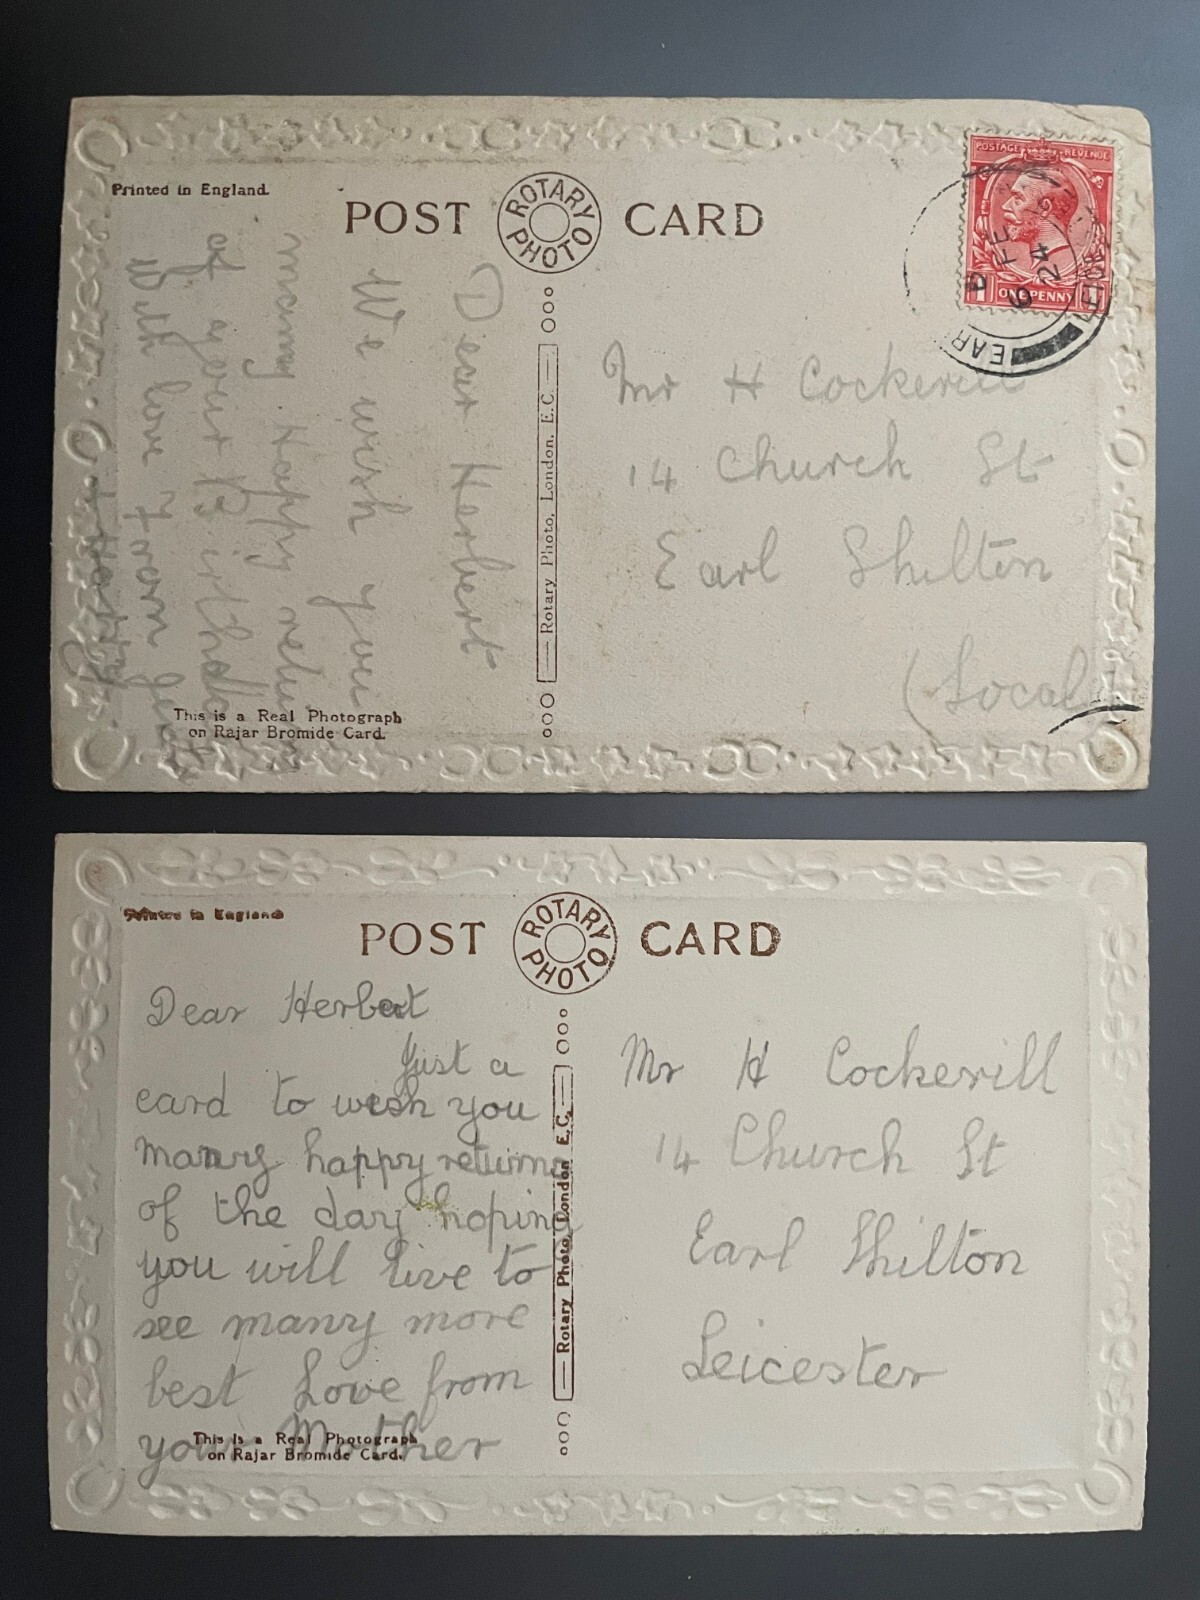 Printed in England.
POST CARD
ROTARY PHOTO
POSTAGE REVENUE
ONE PENNY
6 FE
24
EAR
LEICE
Dear Herbert
We wish you
many Happy
of your Birthda
With love from
Rotary Photo, London, E.C.
Mr H Cockerill
14 Church St
Earl Shilton
(Local
This is a Real Photograph
on Rajar Bromide Card.
Printed in England
POST CARD
ROTARY PHOTO
Dear Herbert
Just a
card to wish you
many happy returns
of the day hoping
you will live to
see many more
best Love from
your Mother
Rotary Photo, London E.C.
Mr H Cockerill
14 Church St
Earl Shilton
Leicester
This is a Real Photograph
on Rajar Bromide Card.